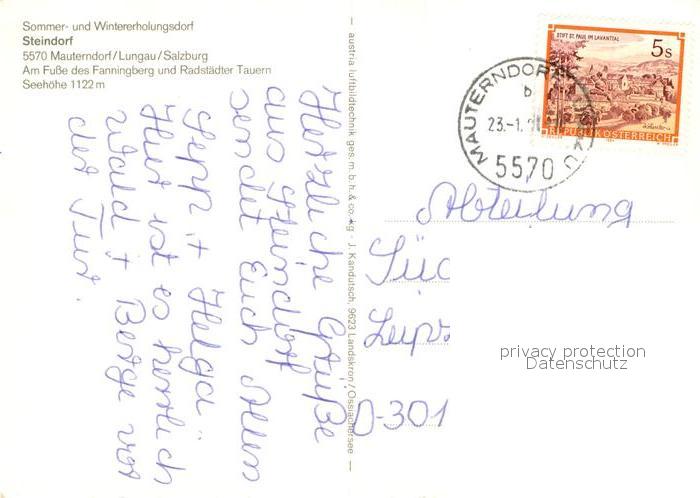 Sommer- und Wintererholungsdorf
Steindorf
5570 Mauterndorf/Lungau/Salzburg
Am Fuße des Fanningberg und Radstädter Tauern
Seehöhe 1122 m
Herzliche Grüße
aus Steindorf
sendet Euch Allen
Sepp + Helga
Hier ist es herrlich
Wald + Berge vor
der Tür.
— austria luftbildtechnik ges.m.b.h.&co.kg - J. Kandutsch, 9623 Landskron/Ossiachersee —
STIFT ST. PAUL IM LAVANTTAL
5 S
REPUBLIK ÖSTERREICH
MAUTERNDORF
b
23.-1.
5570
Abteilung
Süd
Leipz
D-301
privacy protection
Datenschutz